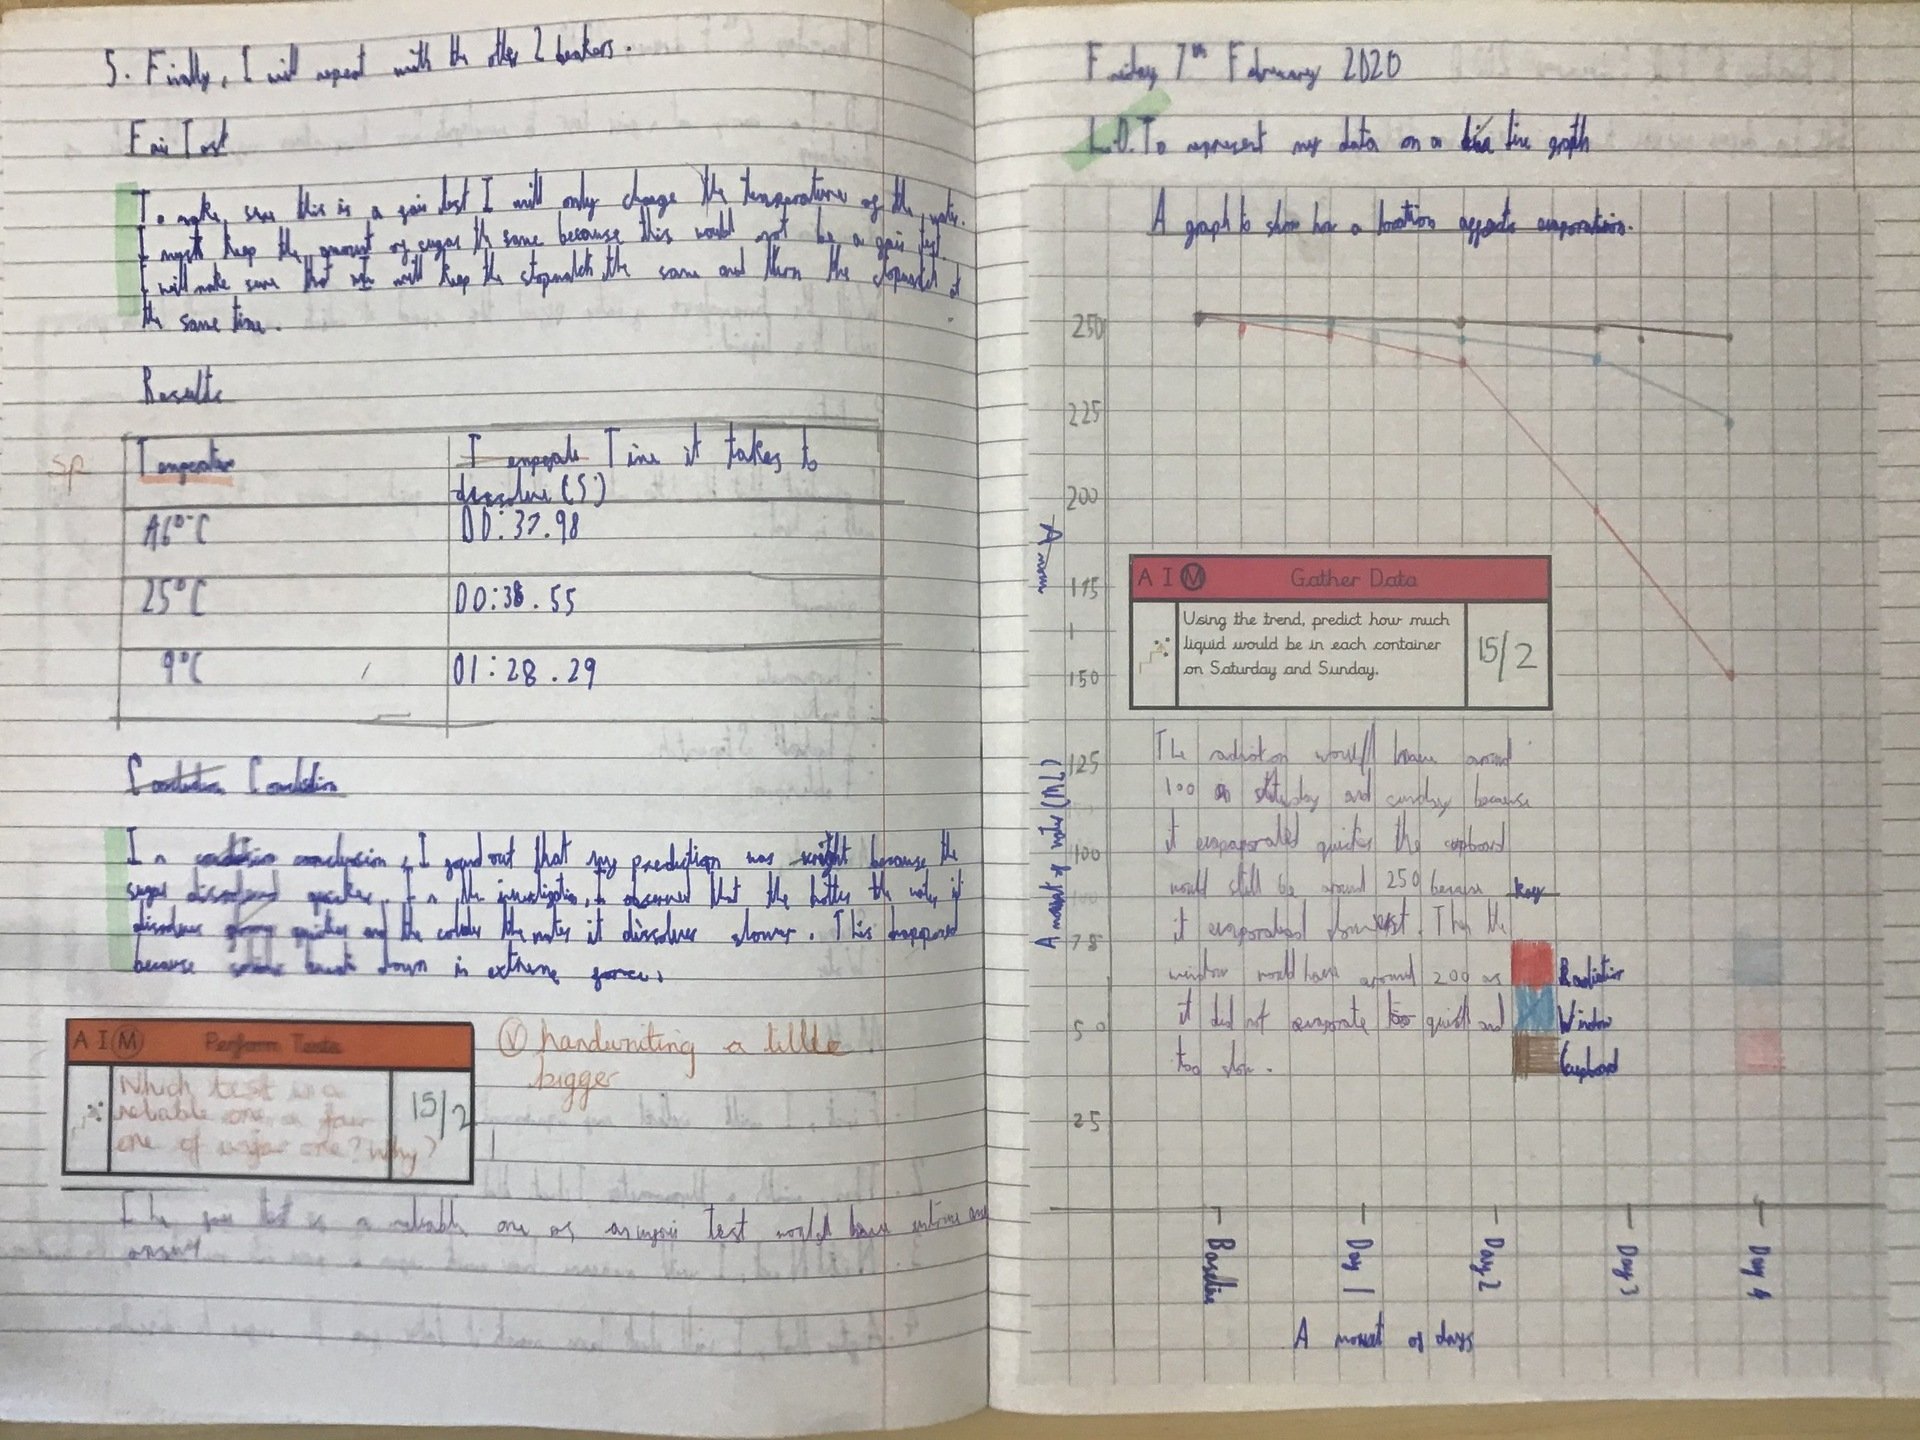 5. Finally, I will repeat with the other 2 beakers.
Fair Test
To make sure this is a fair test I will only change the temperature of the water.
I must keep the amount of sugar the same because this would not be a fair test.
I will make sure that will keep the stopwatch the same and then the stopwatch at
the same time.
Results
sp
Temperature
Time it takes to
dissolve (S)
A6°C
00:37.98
25°C
00:38.55
9°C
01:28.29
Conclusion
In conclusion, I found out that my prediction was right because the
sugar dissolved quicker. In the investigation, I observed that the hotter the water, it
dissolves quicker and the colder the water it dissolves slower. This happened
because break down in extreme force.
A I M Perform Tests
Which test is a
reliable one, a fair
one or unfair one? Why?
15/2
V handwriting a little
bigger
The fair test is a reliable one as an unfair test would have
answer
Friday 7th February 2020
L.O. To represent my data on a line graph
A graph to show how a location affects evaporation.
250
225
200
175
150
125
100
75
50
25
Amount of water (ML)
A I M Gather Data
Using the trend, predict how much
liquid would be in each container
on Saturday and Sunday.
15/2
The radiator would have around
100 on saturday and sunday because
it evaporated quicker the cupboard
would still be around 250 because
it evaporated slowest. Then the
window would have around 200 as
it did not evaporate too quick and
too slow.
Key
Radiator
Window
Cupboard
Baseline
Day 1
Day 2
Day 3
Day 4
Amount of days